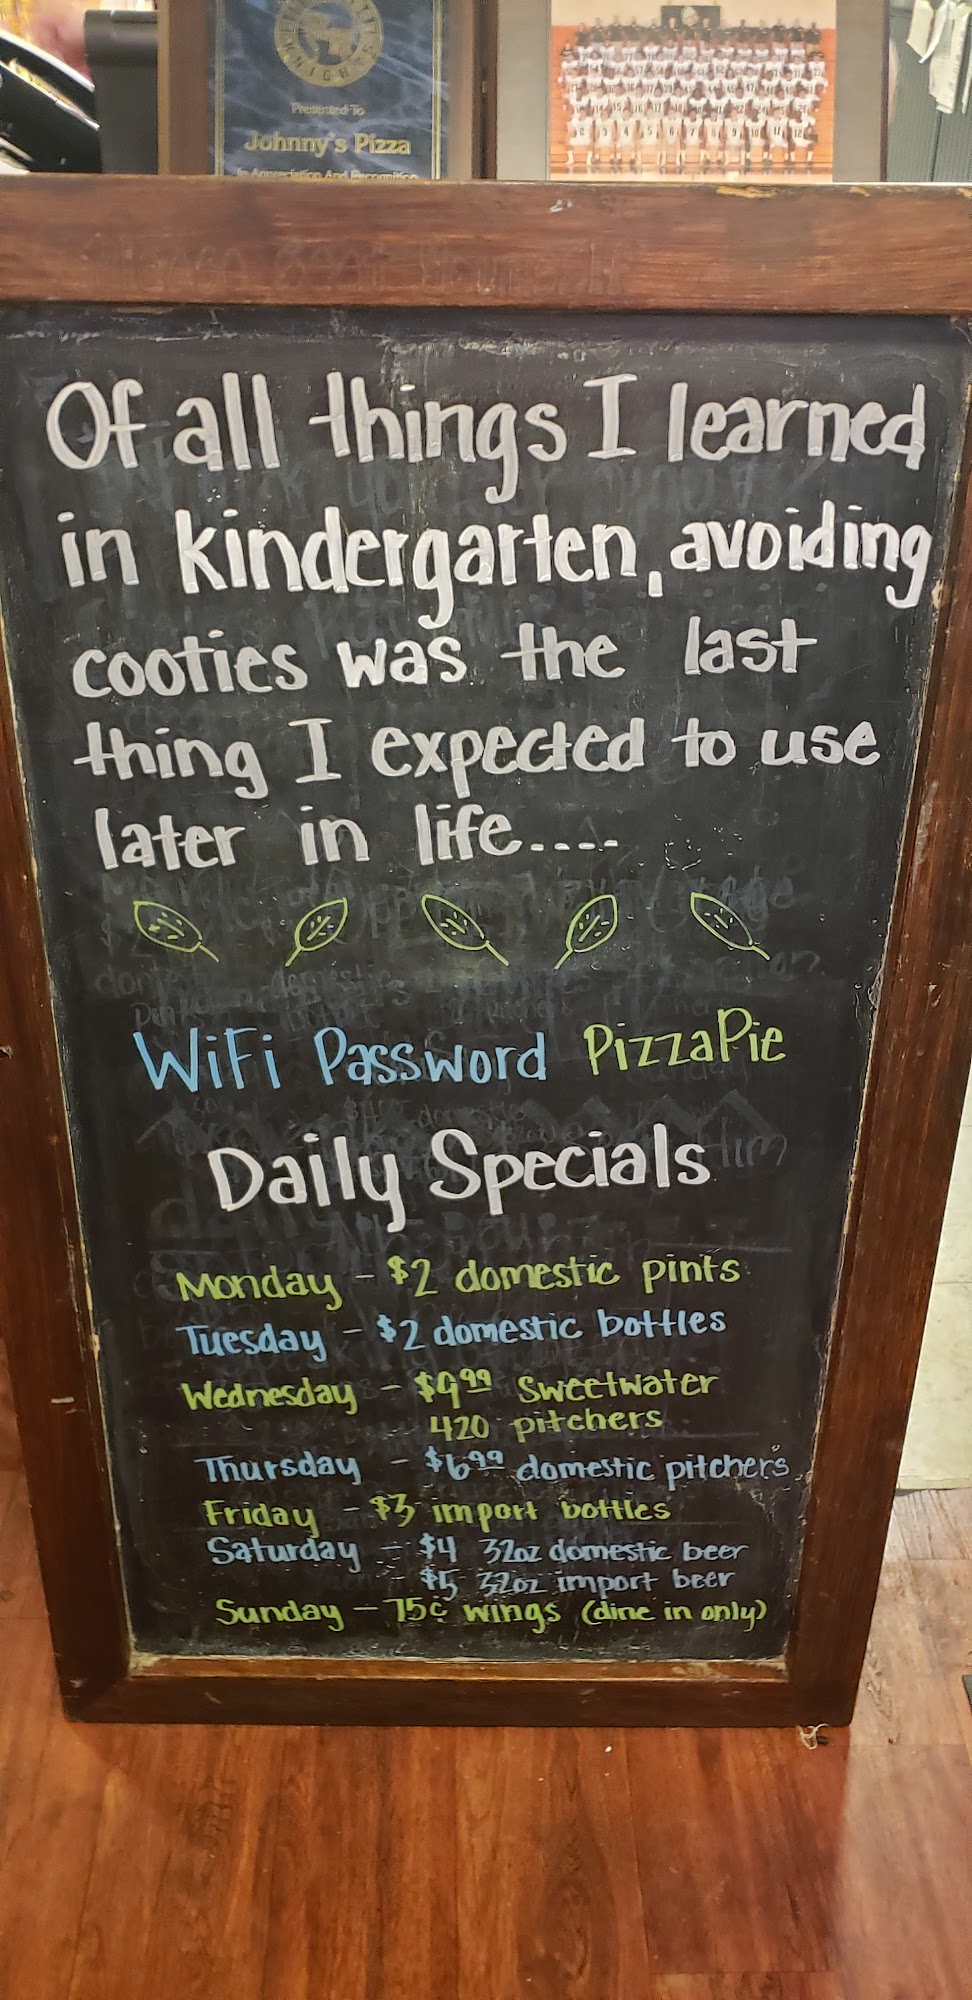 KNIGHTS
Presented To
Johnny's Pizza
In Appreciation And Recognition
Of all things I learned
in kindergarten, avoiding
cooties was the last
thing I expected to use
later in life....
WiFi Password PizzaPie
Daily Specials
Monday - $2 domestic pints
Tuesday - $2 domestic bottles
Wednesday - $9.99 Sweetwater
420 pitchers
Thursday - $6.99 domestic pitchers
Friday - $3 import bottles
Saturday - $4 32oz domestic beer
- $5 32oz import beer
Sunday - 75¢ wings (dine in only)